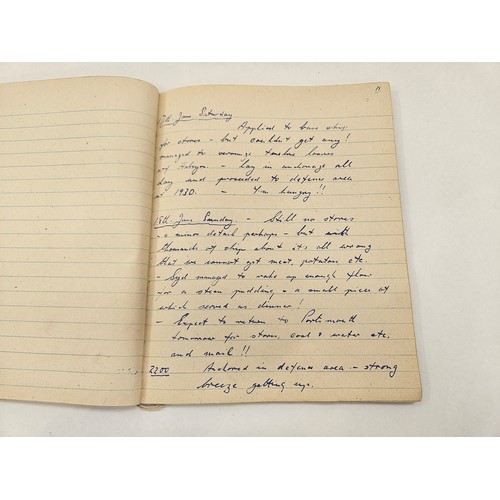 11
17th June Saturday
Applied to base ship
for stores – but couldn't get any!
managed to scrounge twelve loaves
off Halcyon. – lay in anchorage all
day and proceeded to defence area
at 1930. – I'm hungry!!
18th. June Sunday – Still no stores
– a minor detail perhaps – but with
thousands of ships about it's all wrong
that we cannot get meat, potatoes etc.
– Syd managed to rake up enough flour
for a steam pudding – a small piece of
which served as dinner!
– Expect to return to Portsmouth
tomorrow for stores, coal & water etc.
and mail!!
2200 Anchored in defence area – strong
breeze getting up.